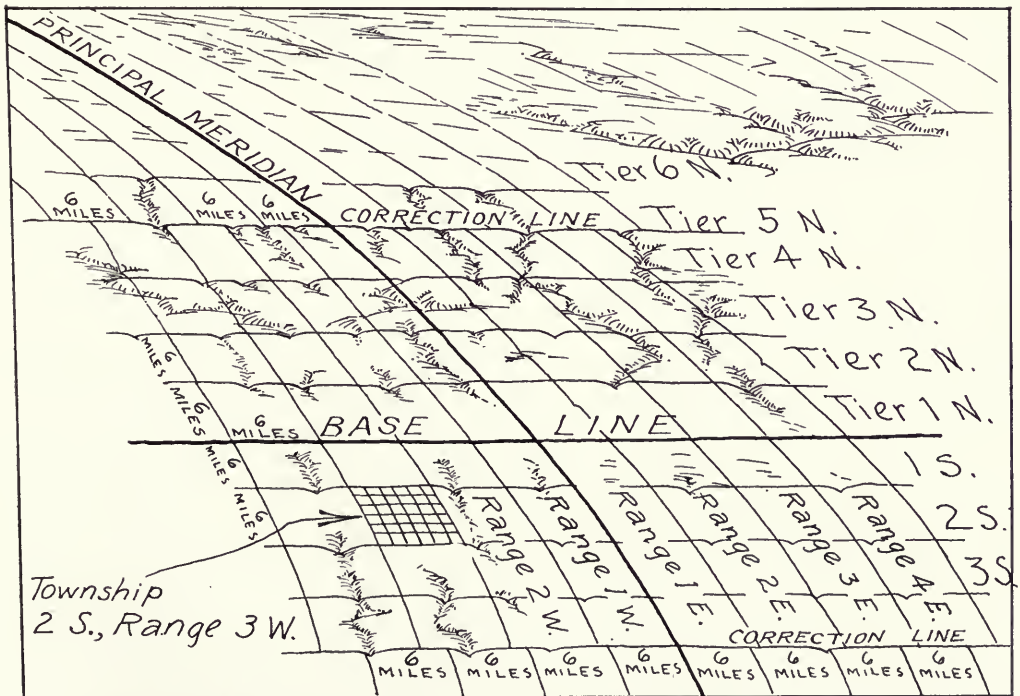 PRINCIPAL MERIDIAN
Tier 6 N.
6 MILES
6 MILES
6 MILES
CORRECTION LINE
Tier 5 N.
Tier 4 N.
Tier 3 N.
Tier 2 N.
6 MILES
Tier 1 N.
6 MILES
6 MILES
BASE LINE
6 MILES
1 S.
6 MILES
2 S.
3 S
Range 2 W.
Range 1 W.
Range 1 E.
Range 2 E.
Range 3 E.
Range 4 E.
Township
2 S., Range 3 W.
CORRECTION LINE
6 MILES
6 MILES
6 MILES
6 MILES
6 MILES
6 MILES
6 MILES
6 MILES